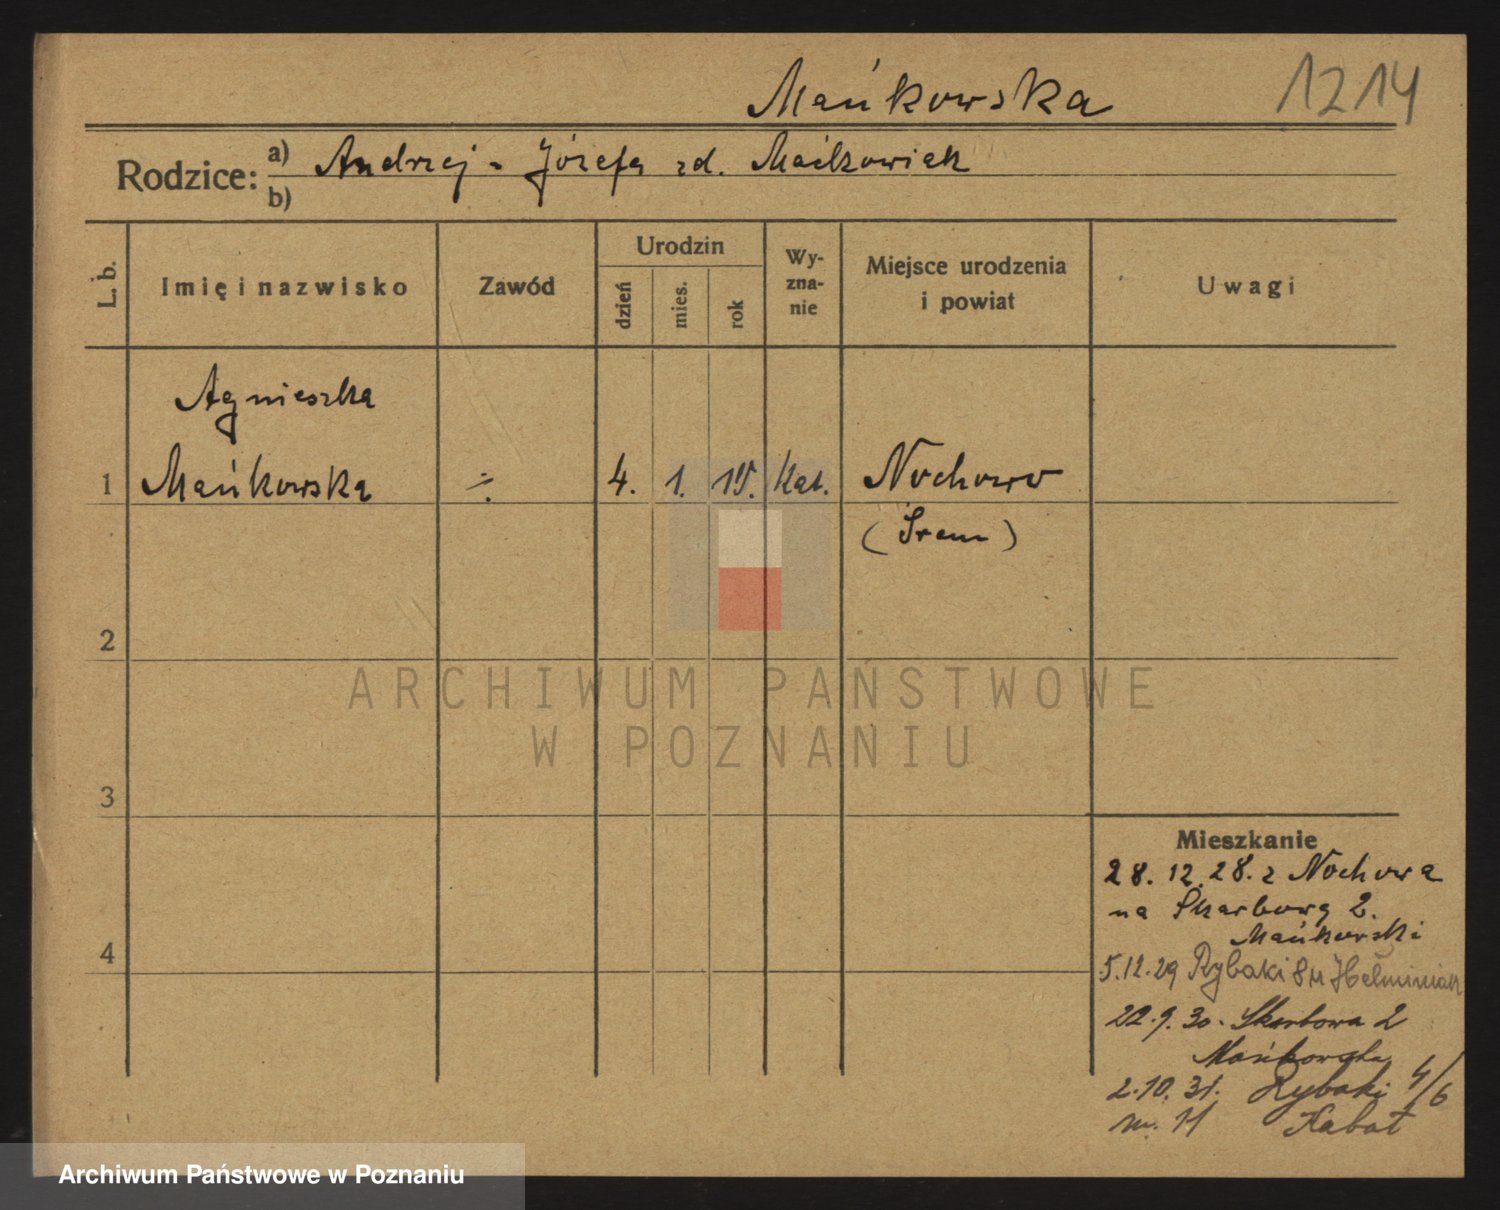 Mańkowska 1214
Rodzice: a) Andrzej - Józefa zd. Maćkowiak
b)
L. b. Imię i nazwisko Zawód Urodzin dzień mies. rok Wy-zna-nie Miejsce urodzenia i powiat Uwagi
Agnieszka
1 Mańkowska ÷ 4. 1. 15. Kat. Nochowo
(Śrem)
2
ARCHIWUM PAŃSTWOWE
W POZNANIU
3
Mieszkanie
28.12.28. z Nochowa
na Skarbową 2.
Mańkowski
4
5.12.29 Rybaki 8 Hełminiak
22.9.30. Skarbowa 2
Mańkowska
2.10.31. Rybaki 4/6
m. 11 Kabat
Archiwum Państwowe w Poznaniu